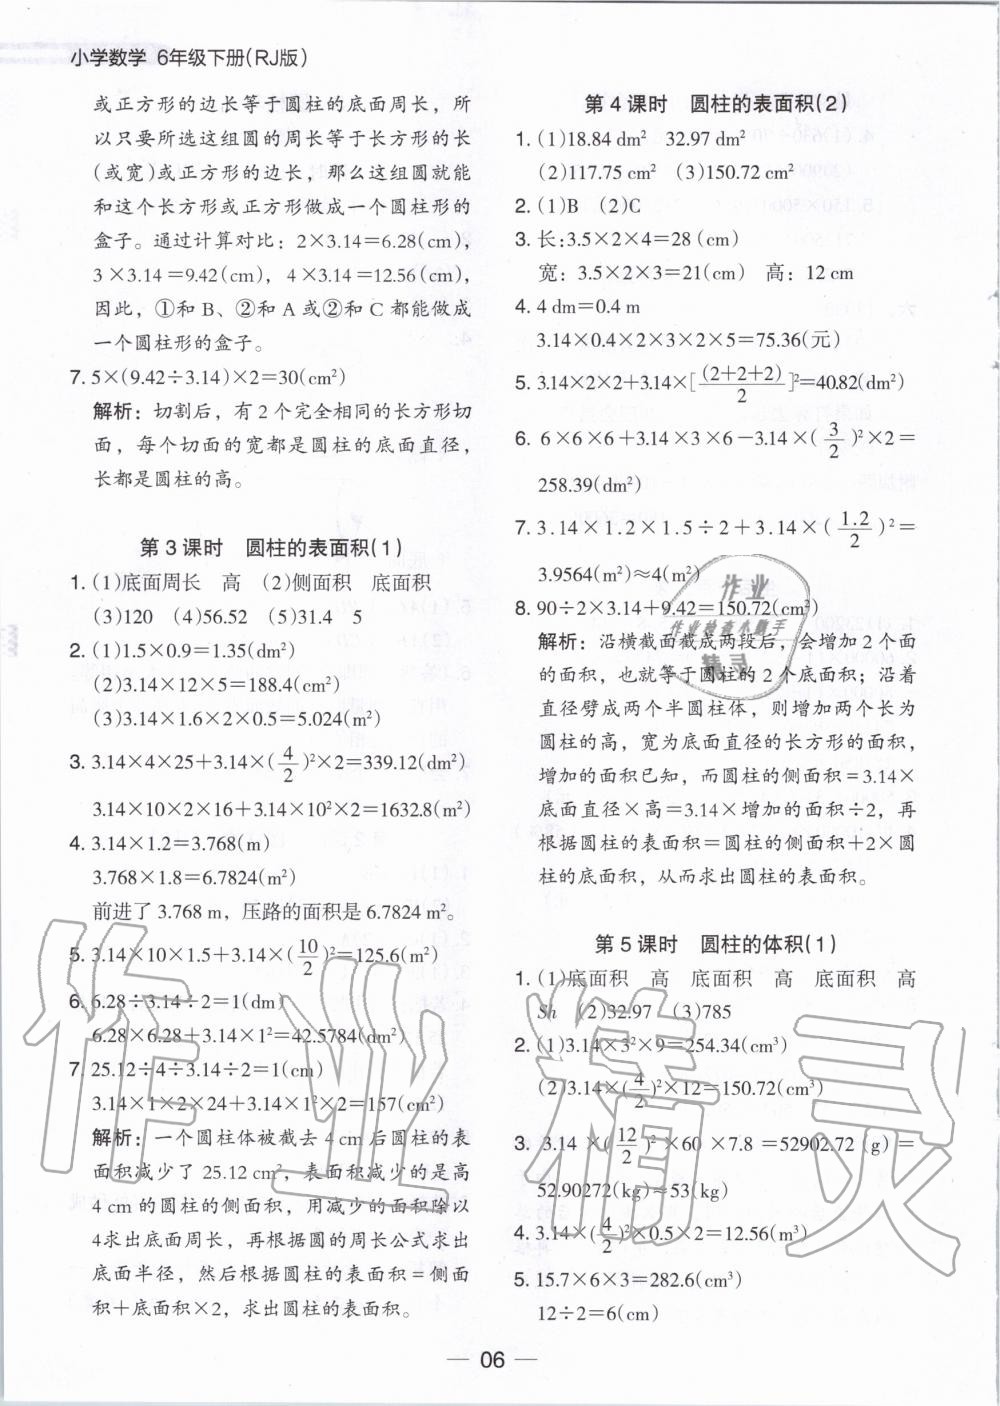 小学数学 6年级下册(RJ版)
或正方形的边长等于圆柱的底面周长，所
以只要所选这组圆的周长等于长方形的长
(或宽)或正方形的边长，那么这组圆就能
和这个长方形或正方形做成一个圆柱形的
盒子。通过计算对比：2×3.14=6.28(cm)，
3×3.14=9.42(cm)，4×3.14=12.56(cm)，
因此，①和B、②和A或②和C都能做成
一个圆柱形的盒子。
7. 5×(9.42÷3.14)×2=30(cm²)
解析：切割后，有2个完全相同的长方形切
面，每个切面的宽都是圆柱的底面直径，
长都是圆柱的高。
第3课时 圆柱的表面积(1)
1. (1)底面周长 高 (2)侧面积 底面积
(3)120 (4)56.52 (5)31.4 5
2. (1)1.5×0.9=1.35(dm²)
(2)3.14×12×5=188.4(cm²)
(3)3.14×1.6×2×0.5=5.024(m²)
3. 3.14×4×25+3.14×(4/2)²×2=339.12(dm²)
3.14×10×2×16+3.14×10²×2=1632.8(m²)
4. 3.14×1.2=3.768(m)
3.768×1.8=6.7824(m²)
前进了3.768 m，压路的面积是6.7824 m²。
5. 3.14×10×1.5+3.14×(10/2)²=125.6(m²)
6. 6.28÷3.14÷2=1(dm)
6.28×6.28+3.14×1²=42.5784(dm²)
7. 25.12÷4÷3.14÷2=1(cm)
3.14×1×2×24+3.14×1²×2=157(cm²)
解析：一个圆柱体被截去4 cm后圆柱的表
面积减少了25.12 cm²，表面积减少的是高
4 cm的圆柱的侧面积，用减少的面积除以
4求出底面周长，再根据圆的周长公式求出
底面半径，然后根据圆柱的表面积=侧面
积+底面积×2，求出圆柱的表面积。
第4课时 圆柱的表面积(2)
1. (1)18.84 dm² 32.97 dm²
(2)117.75 cm² (3)150.72 cm²
2. (1)B (2)C
3. 长:3.5×2×4=28(cm)
宽：3.5×2×3=21(cm) 高：12 cm
4. 4 dm=0.4 m
3.14×0.4×2×3×2×5=75.36(元)
5. 3.14×2×2+3.14×[(2+2+2)/2]²=40.82(dm²)
6. 6×6×6+3.14×3×6-3.14×(3/2)²×2=
258.39(dm²)
7. 3.14×1.2×1.5÷2+3.14×(1.2/2)²=
3.9564(m²)≈4(m²)
8. 90÷2×3.14+9.42=150.72(cm²)
解析：沿横截面截成两段后，会增加2个面
的面积，也就等于圆柱的2个底面积；沿着
直径劈成两个半圆柱体，则增加两个长为
圆柱的高，宽为底面直径的长方形的面积，
增加的面积已知，而圆柱的侧面积=3.14×
底面直径×高=3.14×增加的面积÷2，再
根据圆柱的表面积=圆柱的侧面积+2×圆
柱的底面积，从而求出圆柱的表面积。
第5课时 圆柱的体积(1)
1. (1)底面积 高 底面积 高 底面积 高
Sh (2)32.97 (3)785
2. (1)3.14×3²×9=254.34(cm³)
(2)3.14×(4/2)²×12=150.72(cm³)
3. 3.14×(12/2)²×60×7.8=52902.72(g)=
52.90272(kg)≈53(kg)
4. 3.14×(4/2)²×0.5×2=12.56(m³)
5. 15.7×6×3=282.6(cm³)
12÷2=6(cm)
— 06 —
作业精灵
作业
作业检查小助手
精灵